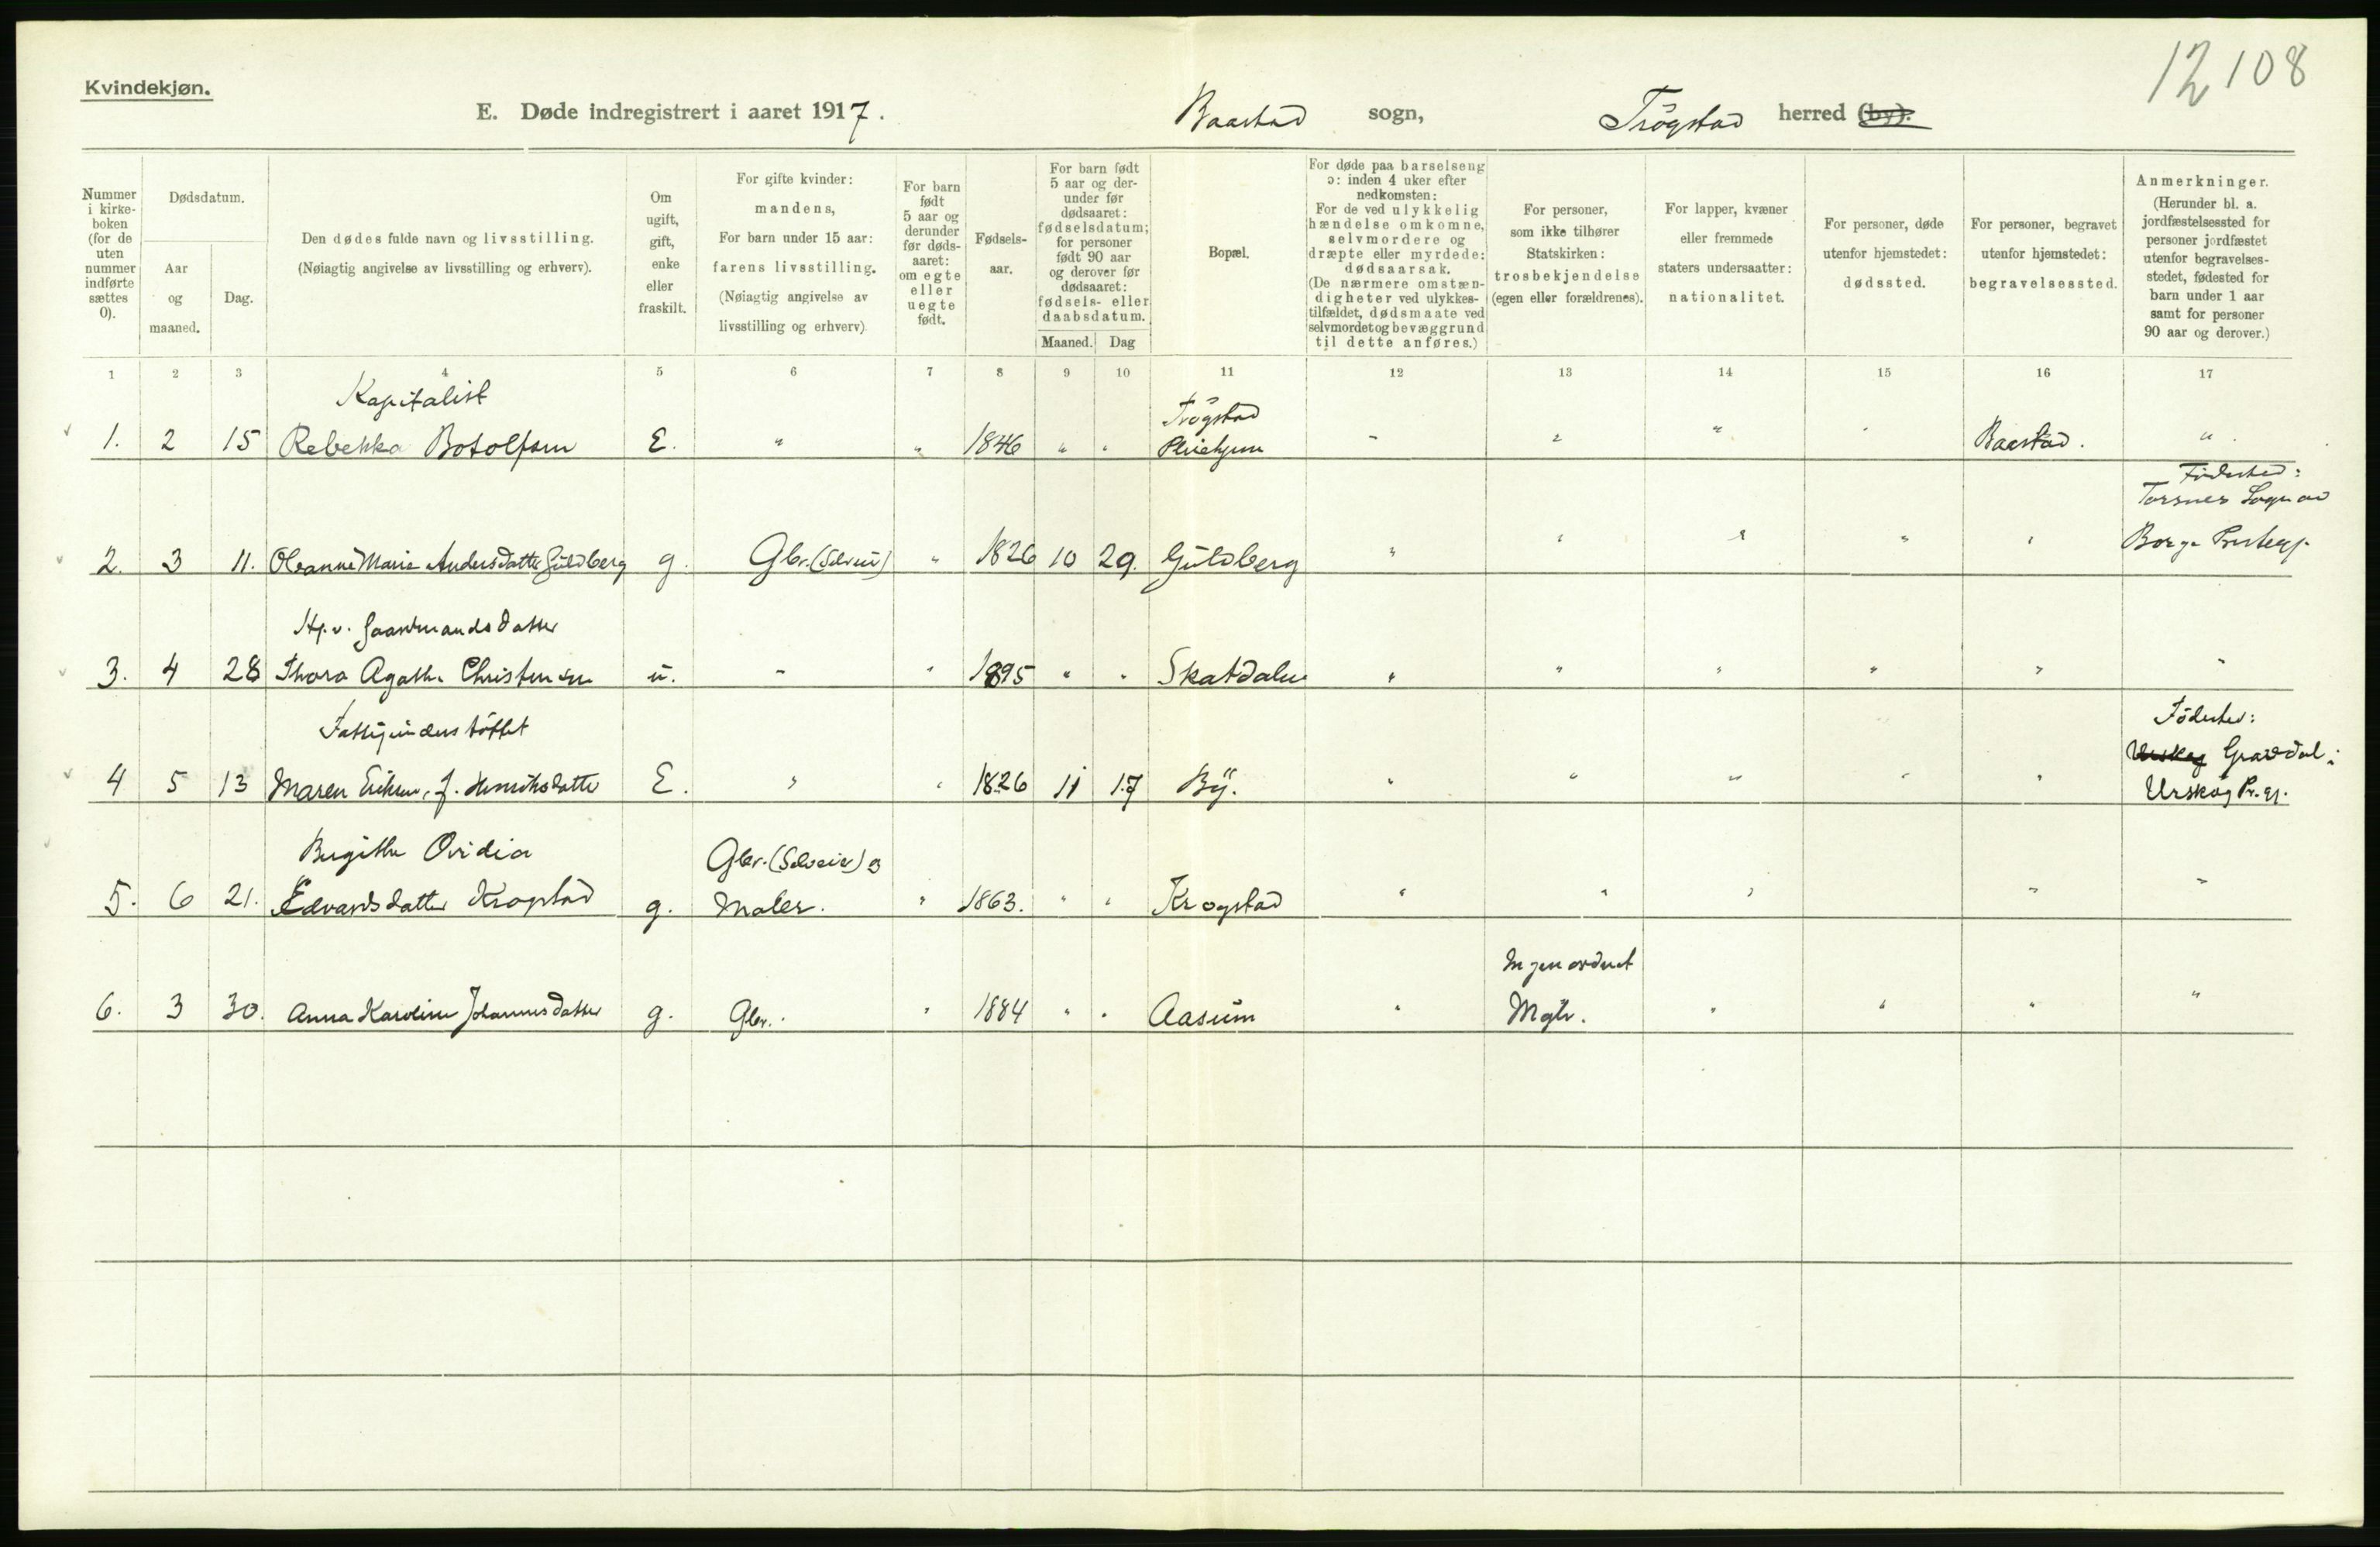 12 108
Kvindekjøn.
E. Døde indregistrert i aaret 1917. Baastad sogn, Trögstad herred (by).
Nummer i kirkeboken (for de uten nummer indførte sættes 0).
Dødsdatum.
Aar og maaned.
Dag.
Den dødes fulde navn og livsstilling.
(Nøiagtig angivelse av livsstilling og erhverv).
Om ugift, gift, enke eller fraskilt.
For gifte kvinder: mandens,
For barn under 15 aar: farens livsstilling.
(Nøiagtig angivelse av livsstilling og erhverv)
For barn født 5 aar og derunder før dødsaaret: om egte eller uegte født.
Fødselsaar.
For barn født 5 aar og derunder før dødsaaret: fødselsdatum; for personer født 90 aar og derover før dødsaaret: fødsels- eller daabsdatum.
Maaned. Dag
Bopæl.
For døde paa barselseng ɔ: inden 4 uker efter nedkomsten:
For de ved ulykkelig hændelse omkomne, selvmordere og dræpte eller myrdede: dødsaarsak.
(De nærmere omstændigheter ved ulykkestilfældet, dødsmaate ved selvmordet og bevæggrund til dette anføres.)
For personer, som ikke tilhører Statskirken: trosbekjendelse (egen eller forældrenes).
For lapper, kvæner eller fremmede staters undersaatter: nationalitet.
For personer, døde utenfor hjemstedet: dødssted.
For personer, begravet utenfor hjemstedet: begravelsessted.
Anmerkninger.
(Herunder bl. a. jordfæstelsessted for personer jordfæstet utenfor begravelsesstedet, fødested for barn under 1 aar samt for personer 90 aar og derover.)
1 2 3 4 5 6 7 8 9 10 11 12 13 14 15 16 17
Kapitalist Trögstad
1. 2 15 Rebekka Botolfsen E. " " 1846 " " - " " " Baastad. "
Födested:
Torsnes Sogn av
2. 3 11. Oleanne Marie Andersdatter Güldberg g. Gbr. (Selveier) " 1826 10 29. Güldberg " " " " " Borge Prestegj.
Hj.v. Gaardmandsdatter
3. 4 28 Thora Agathe Christensen u. - " 1895 " " Skatdalen " " " " " "
Fattigunderstöttet Födested:
Urskog Gravdal i
4 5 13 Maren Eriksen, f. Henriksdatter E. " " 1826 11 17 By. " " " " " Urskog Pr.gj.
Birgithe Ovidia Gbr. (Selveier) og
5. 6 21. Edvardsdatter Krogstad g. Maler. " 1863. " " Krogstad " " " " "
Ingen ordnet
6. 3 30. Anna Karoline Johannesdatter g. Gbr. " 1884 " " Aasum " Mgh. " " " "